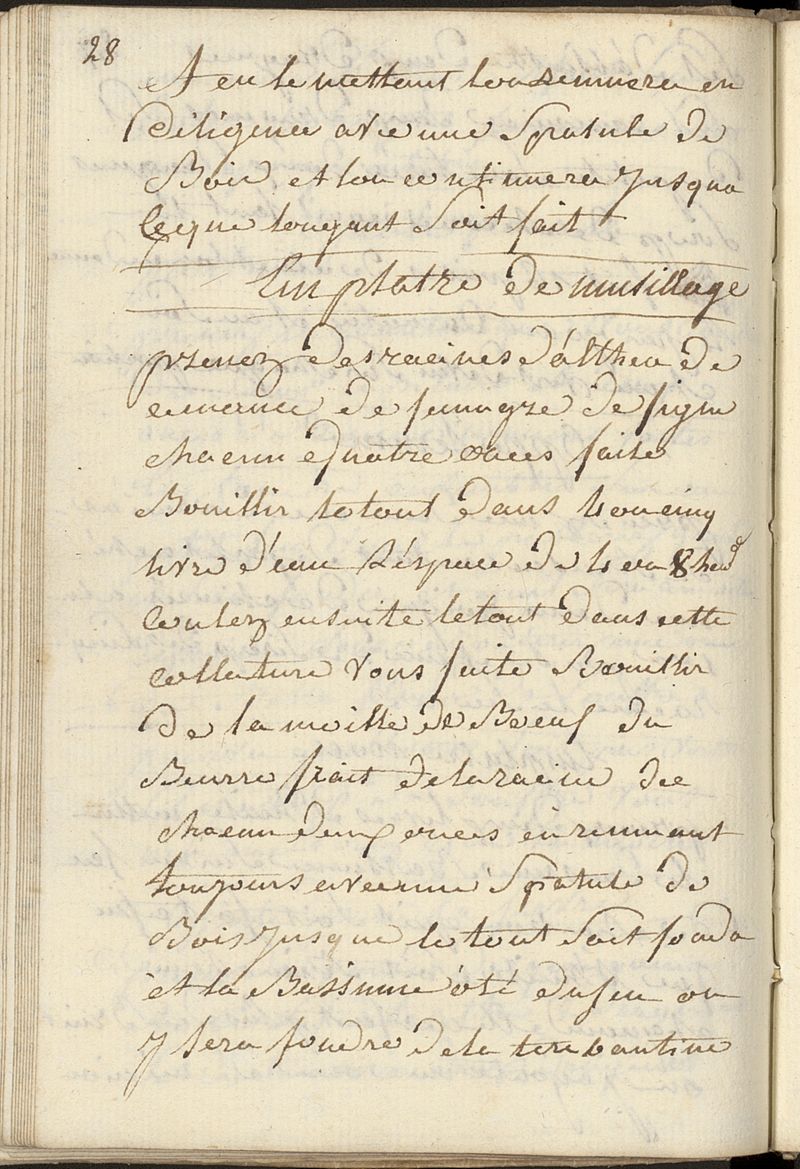 28
et en le mettant lon remuera en
diligence avec une Spatule de
Bois et lon continuera jusqua
ceque longant Soit fait
Emplatre de musillage
prenez des racines d'althea de
de fenugre de figue
chacun quatre onces faite
Bouillir letout dans 4 ou cinq
livre d'eau l'éspace de 4 ou 8 heu
Coulez ensuite letout dans cette
collature vous faite Bouillir
de la moille de Boeuf du
Beurre frait delaracine de
chacun deux onces en remuant
toujours avecune Spatule de
Bois jusque le tout Soit fondu
et la Bassinne ôté dufeu on
y fera fondre dela terebantine